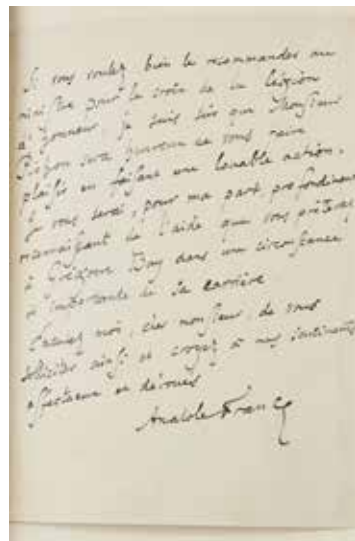 Si vous voulez bien le recommander au
ministre pour la croix de la Légion
d'honneur, je suis sûr que Monsieur
sera heureux de vous faire
plaisir en faisant une louable action.
Je vous serai, pour ma part, profondément
reconnaissant de l'aide que vous prêterez
à Day dans une circonstance
si importante de sa carrière
Excusez moi, cher monsieur, de vous
solliciter ainsi et croyez à mes sentiments
affectueux et dévoués
Anatole France